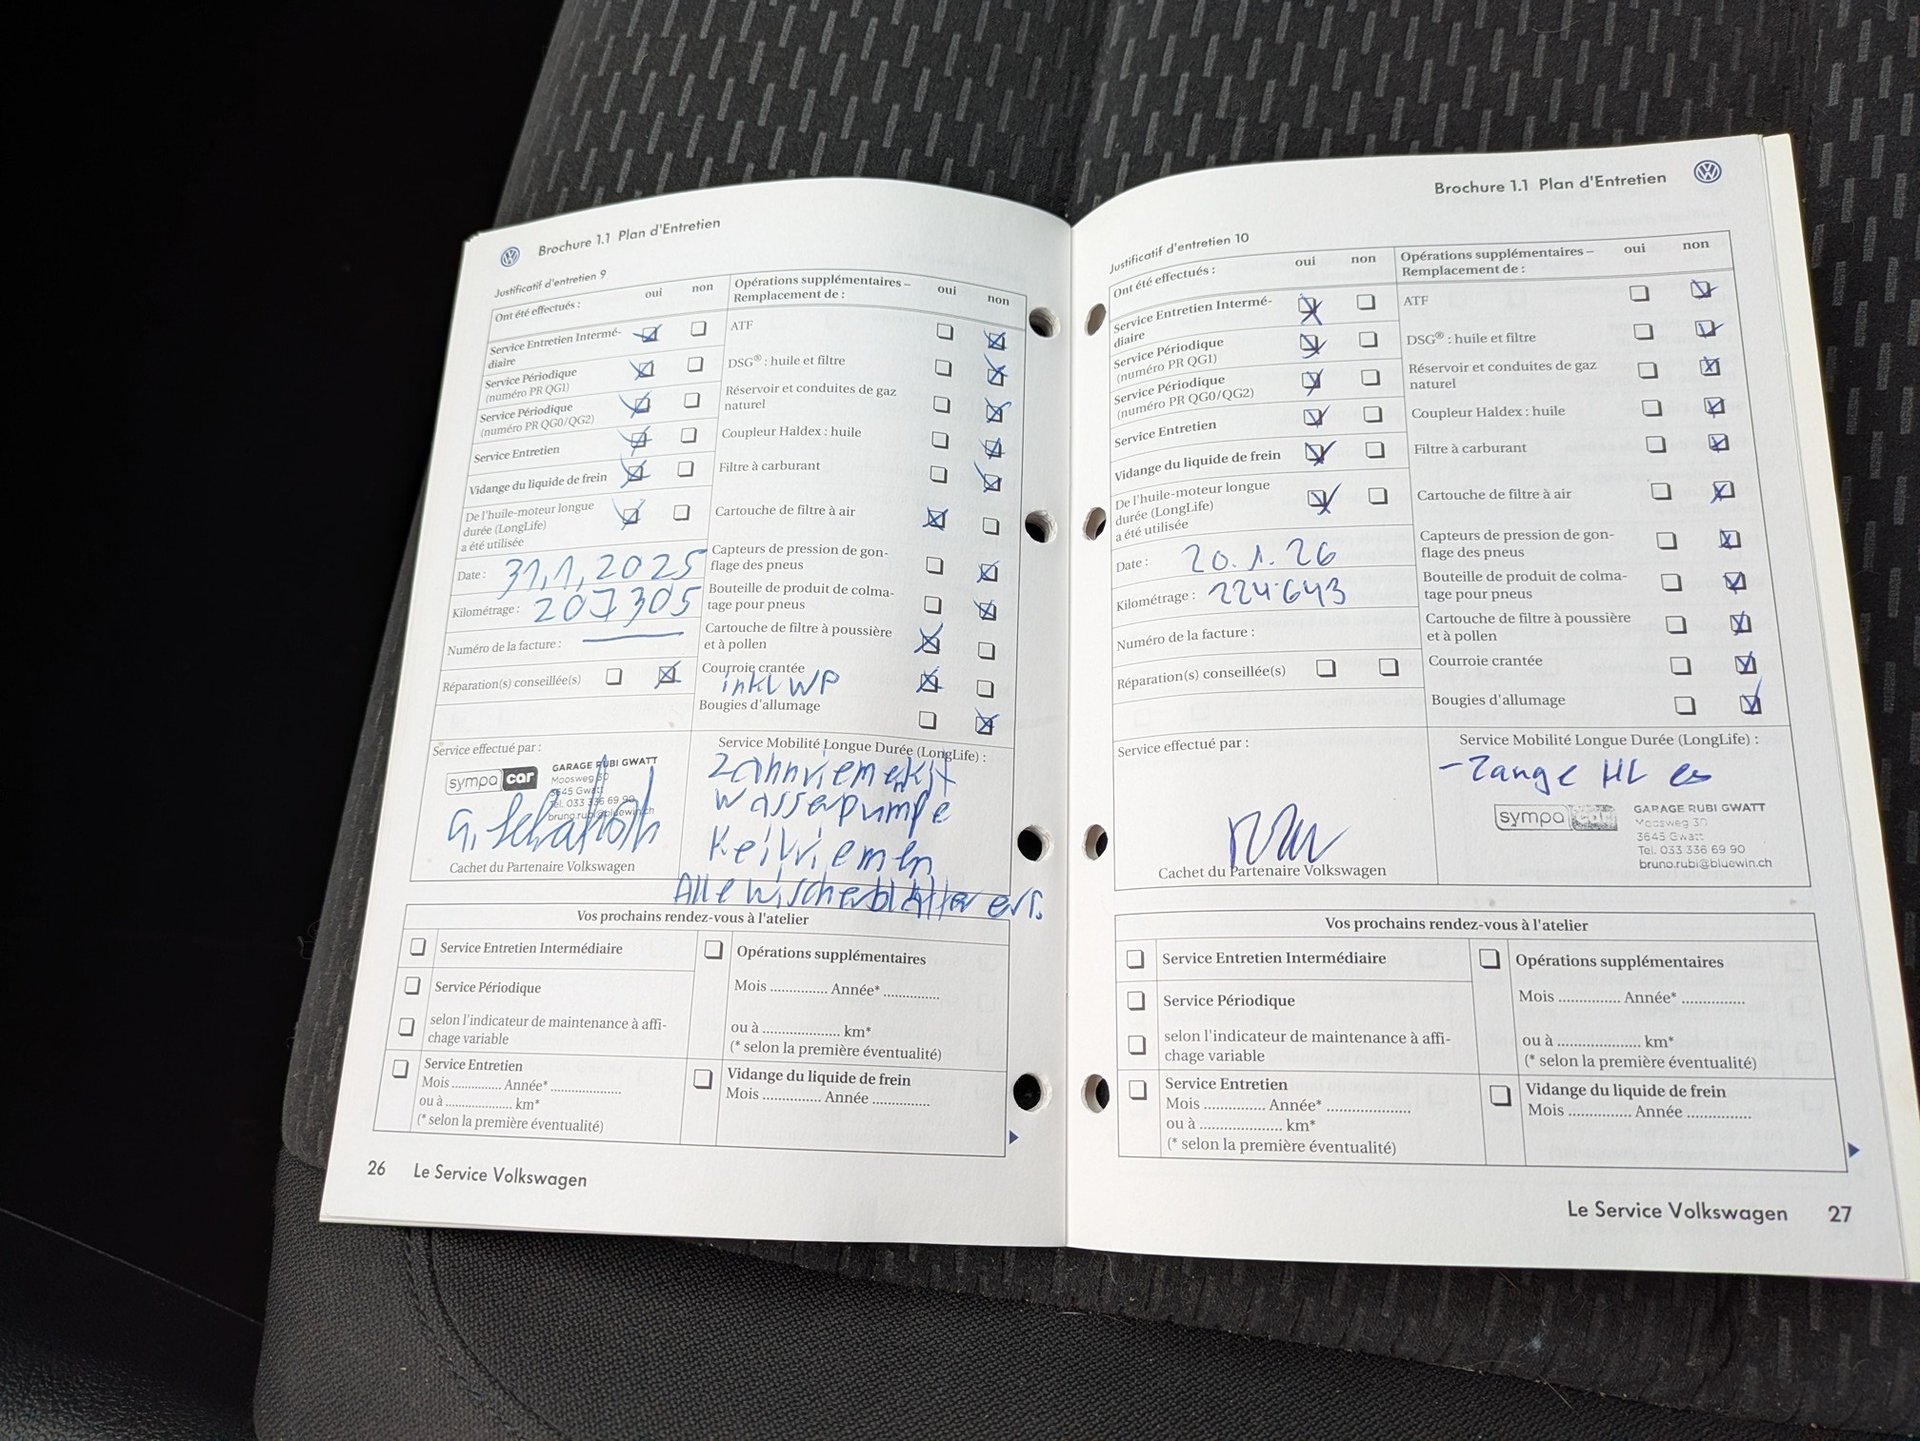 Brochure 1.1 Plan d'Entretien
Justificatif d'entretien 9
Ont été effectués :
oui
non
Service Entretien Intermé-
diaire
Service Périodique
(numéro PR QG1)
Service Périodique
(numéro PR QG0/QG2)
Service Entretien
Vidange du liquide de frein
De l'huile-moteur longue
durée (LongLife)
a été utilisée
Date : 31,1,2025
Kilométrage : 207305
Numéro de la facture :
Réparation(s) conseillée(s)
Opérations supplémentaires –
Remplacement de :
oui
non
ATF
DSG® : huile et filtre
Réservoir et conduites de gaz
naturel
Coupleur Haldex : huile
Filtre à carburant
Cartouche de filtre à air
Capteurs de pression de gon-
flage des pneus
Bouteille de produit de colma-
tage pour pneus
Cartouche de filtre à poussière
et à pollen
Courroie crantée
inkl WP
Bougies d'allumage
Service effectué par :
sympa car
GARAGE RUBI GWATT
Moosweg 30
3645 Gwatt
Tel. 033 336 69 90
bruno.rubi@bluewin.ch
Cachet du Partenaire Volkswagen
Service Mobilité Longue Durée (LongLife) :
Zahnriemenkit
Wasserpumpe
Keilriemen
Alle Wischerblätter ers.
Vos prochains rendez-vous à l'atelier
Service Entretien Intermédiaire
Service Périodique
selon l'indicateur de maintenance à affi-
chage variable
Service Entretien
Mois .............. Année* ....................
ou à ................... km*
(* selon la première éventualité)
Opérations supplémentaires
Mois ............... Année* ...............
ou à .................... km*
(* selon la première éventualité)
Vidange du liquide de frein
Mois ............... Année ...............
26 Le Service Volkswagen
Brochure 1.1 Plan d'Entretien
Justificatif d'entretien 10
Ont été effectués :
oui
non
Service Entretien Intermé-
diaire
Service Périodique
(numéro PR QG1)
Service Périodique
(numéro PR QG0/QG2)
Service Entretien
Vidange du liquide de frein
De l'huile-moteur longue
durée (LongLife)
a été utilisée
Date : 20.1.26
Kilométrage : 224'643
Numéro de la facture :
Réparation(s) conseillée(s)
Opérations supplémentaires –
Remplacement de :
oui
non
ATF
DSG® : huile et filtre
Réservoir et conduites de gaz
naturel
Coupleur Haldex : huile
Filtre à carburant
Cartouche de filtre à air
Capteurs de pression de gon-
flage des pneus
Bouteille de produit de colma-
tage pour pneus
Cartouche de filtre à poussière
et à pollen
Courroie crantée
Bougies d'allumage
Service effectué par :
Cachet du Partenaire Volkswagen
Service Mobilité Longue Durée (LongLife) :
HL
sympa car
GARAGE RUBI GWATT
Moosweg 30
3645 Gwatt
Tel. 033 336 69 90
bruno.rubi@bluewin.ch
Vos prochains rendez-vous à l'atelier
Service Entretien Intermédiaire
Service Périodique
selon l'indicateur de maintenance à affi-
chage variable
Service Entretien
Mois ............... Année* .....................
ou à ..................... km*
(* selon la première éventualité)
Opérations supplémentaires
Mois ............... Année* ...............
ou à .................... km*
(* selon la première éventualité)
Vidange du liquide de frein
Mois ............... Année ...............
Le Service Volkswagen 27